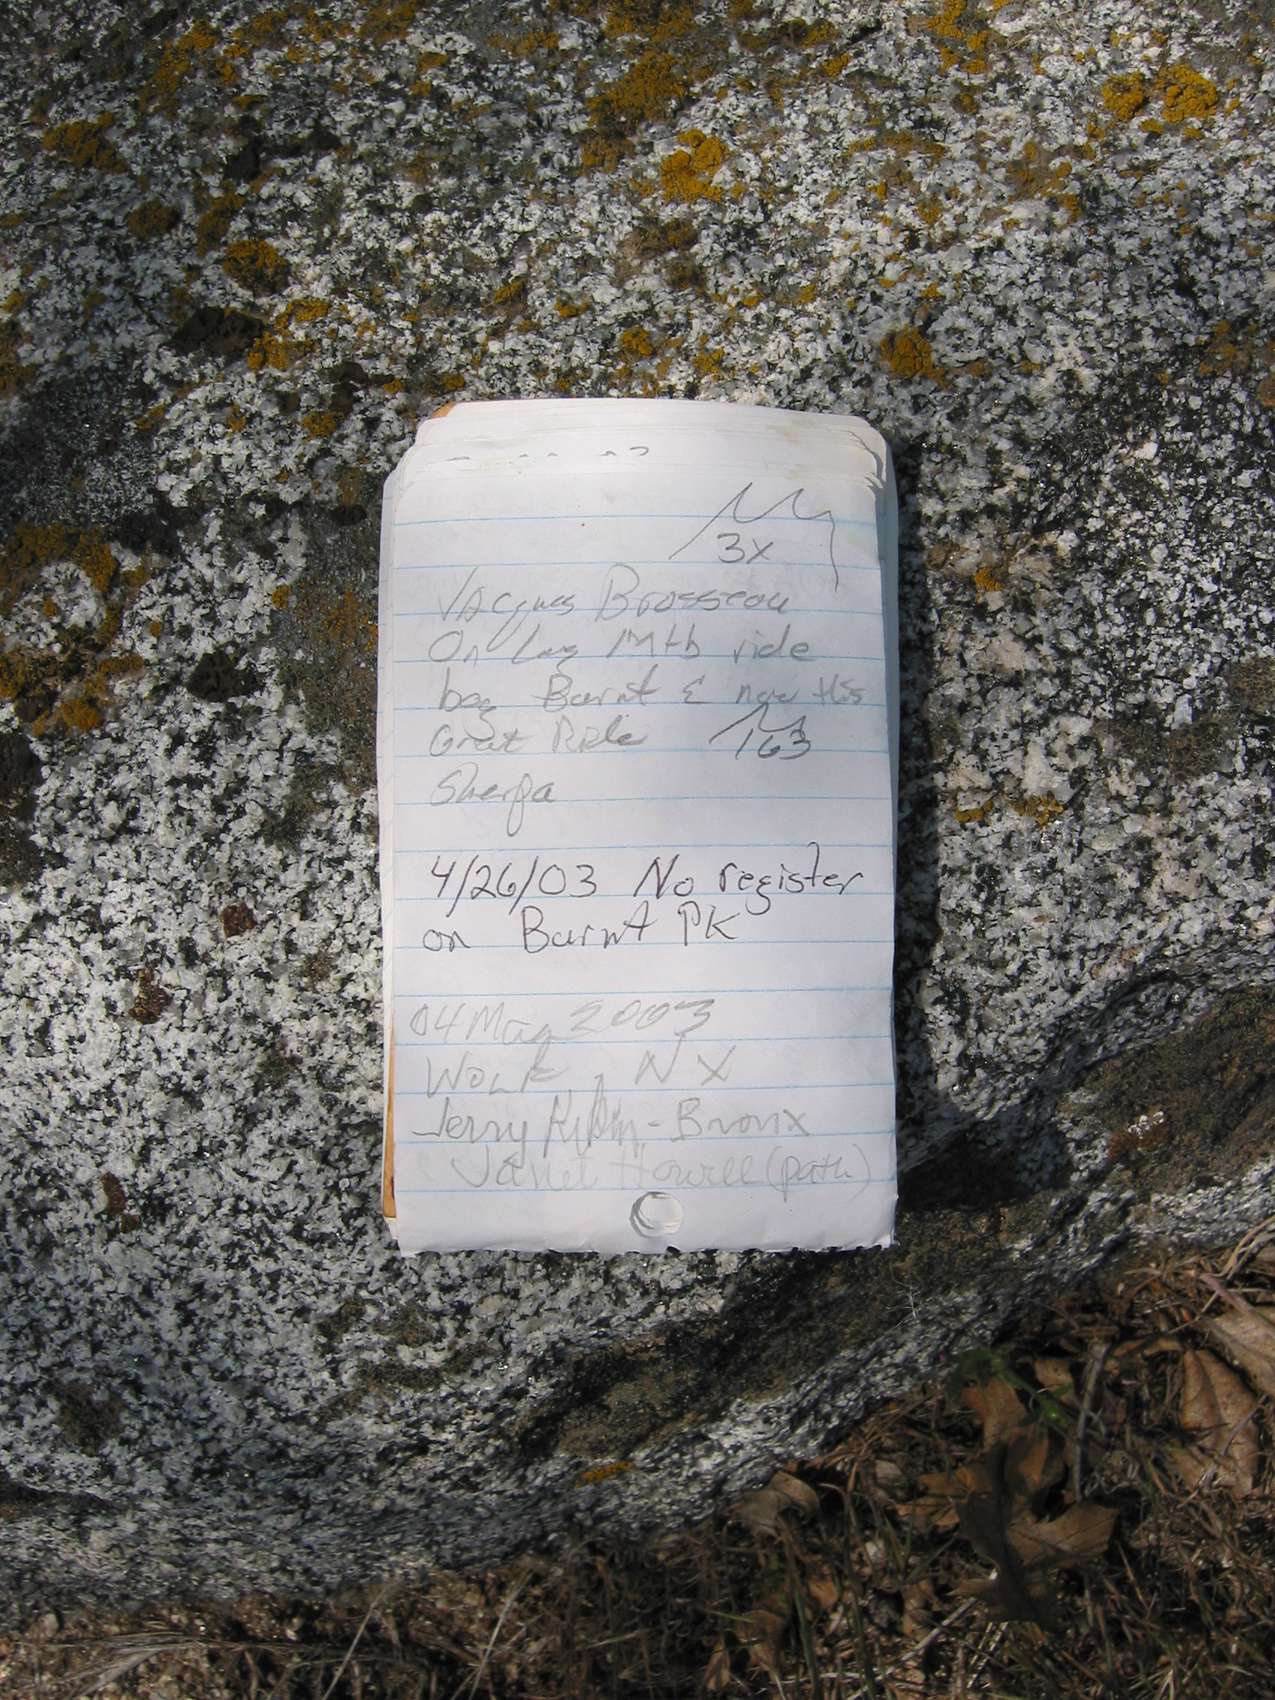 3x
Jacques Brosseau
On Long Mtb ride
bag Burnt & now this
Great Ride 163
Sherpa
4/26/03 No register
on Burnt PK
04 May 2003
Wolf NX
Jerry - Bronx
Janet Howell (path)